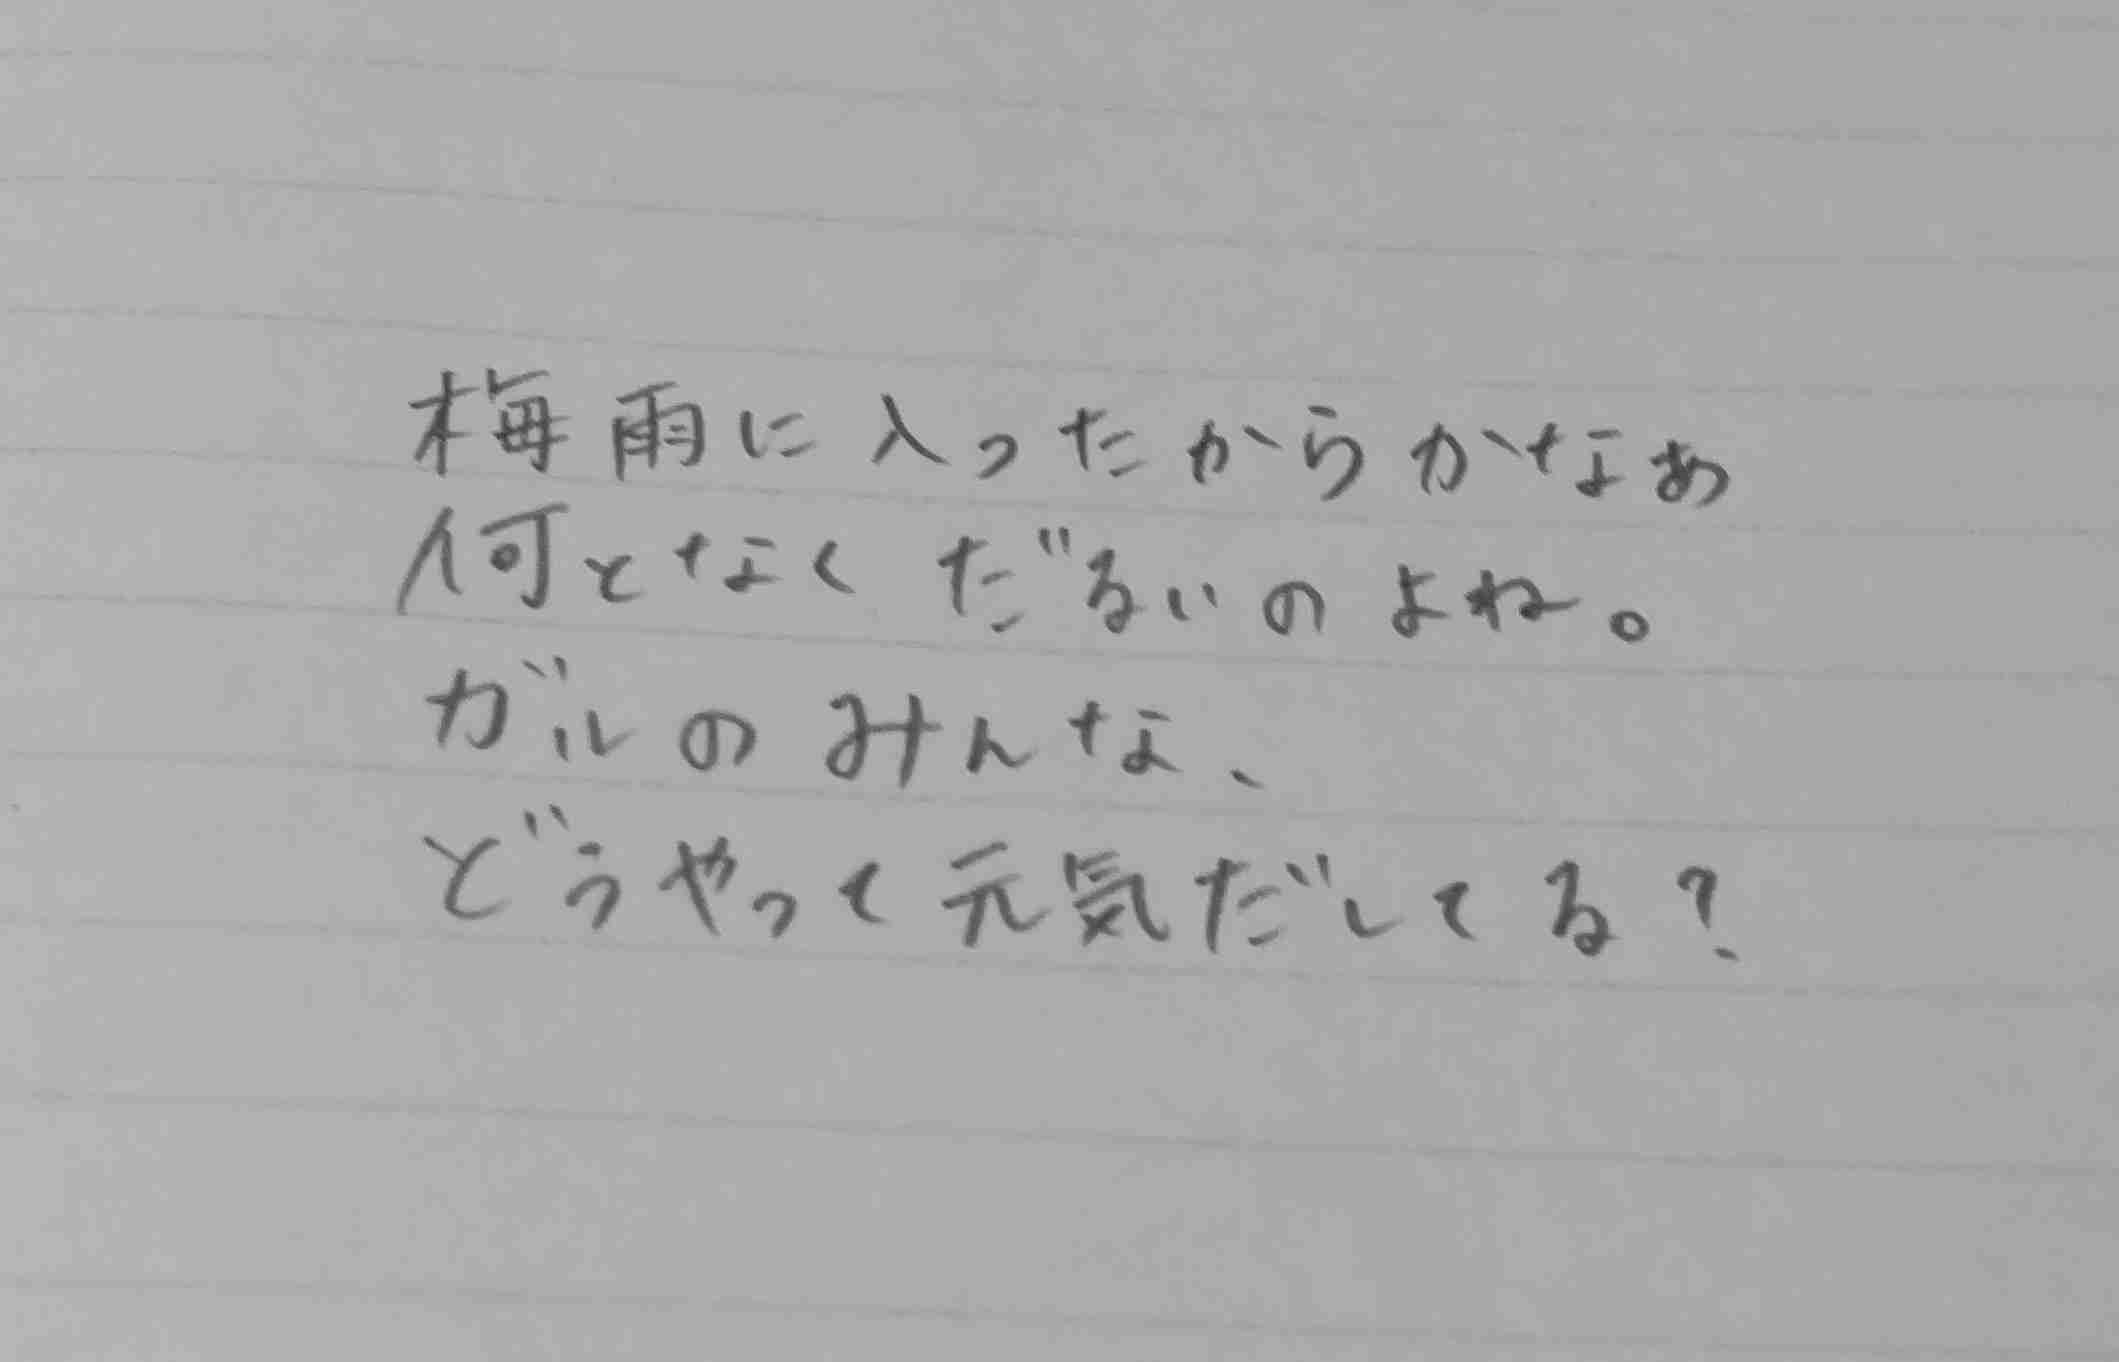 梅雨に入ったからかなぁ
何となくだるいのよね。
ガルのみんな、
どうやって元気だしてる?